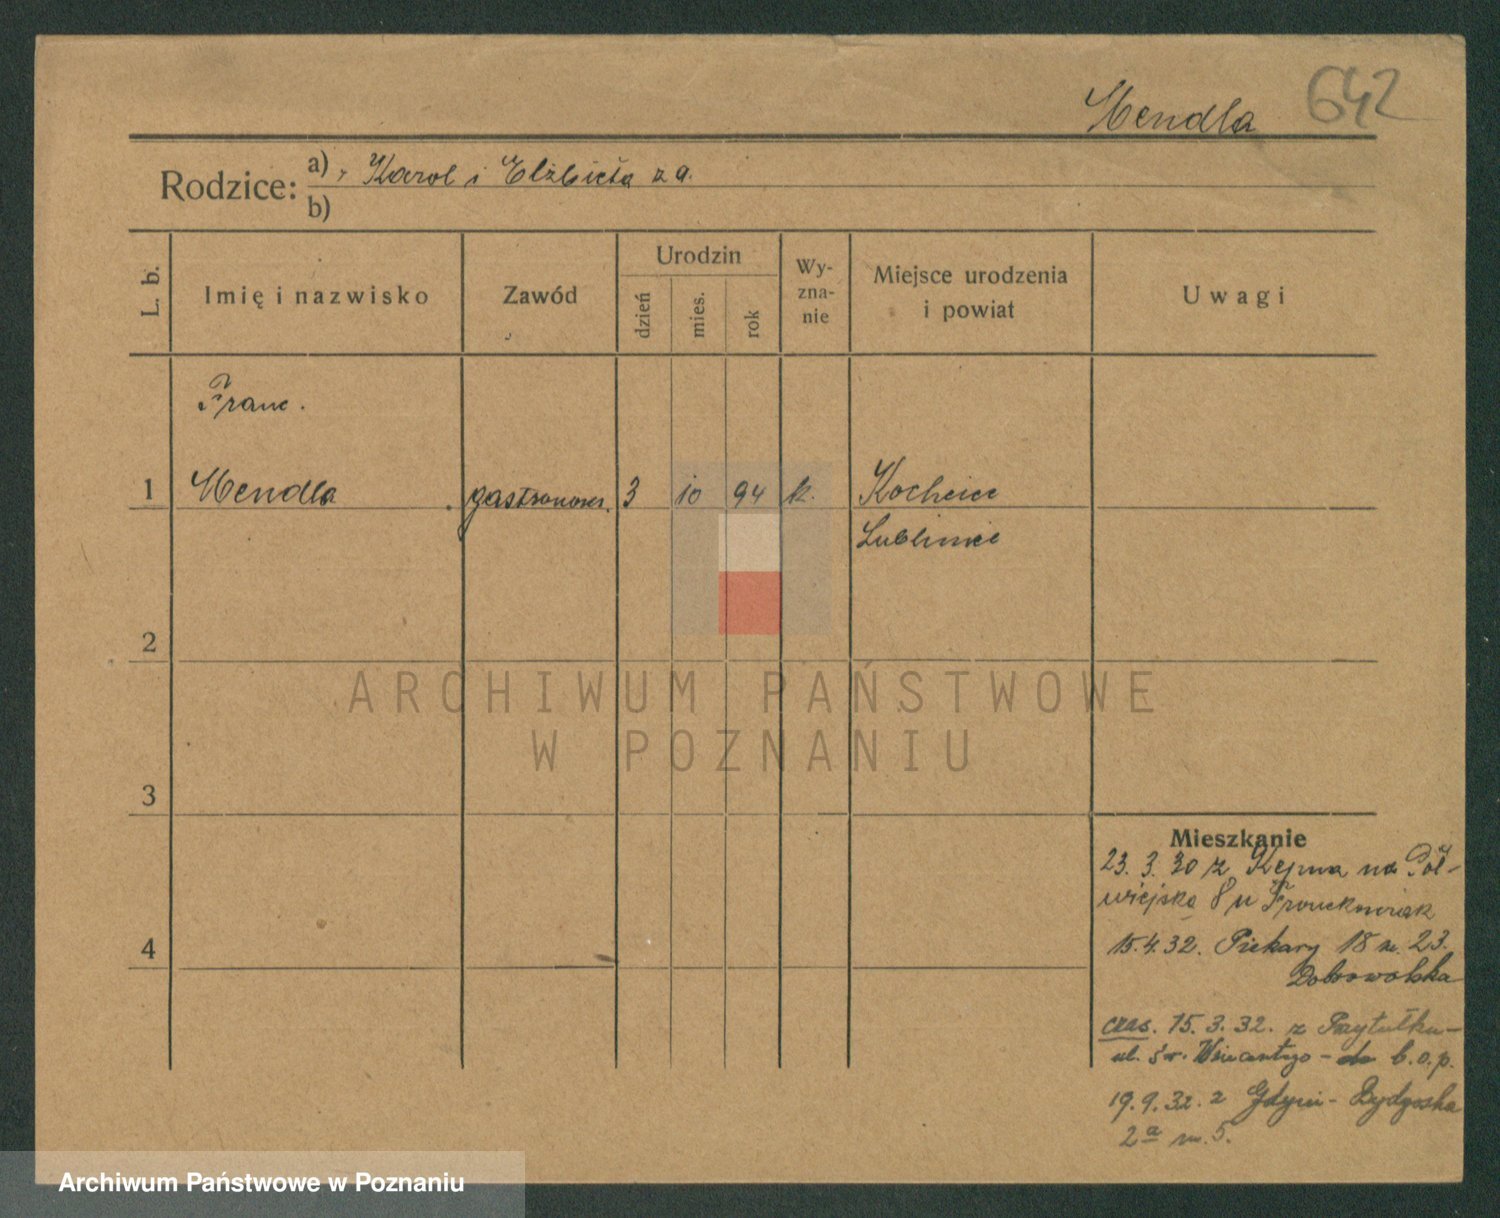 Mendla 642
Rodzice: a) Karol i Elżbieta z q.
b)
L. b. Imię i nazwisko Zawód Urodzin dzień mies. rok Wy-zna-nie Miejsce urodzenia i powiat Uwagi
Franc.
1 Mendla gastronom. 3 10 94 k. Kochcice
Lubliniec
2
ARCHIWUM PAŃSTWOWE
W POZNANIU
3
Mieszkanie
23. 3. 30 z Kępna na Pół-
wiejską 8 u Franckowiak
4
15.4.32. Piekary 18 m. 23.
Dobrowolska
czas. 15. 3. 32. z Przytułku-
ul. św. Wincentego - do b.o.p.
19. 9. 32. z Gdyni - Bydgoska
2a m. 5.
Archiwum Państwowe w Poznaniu